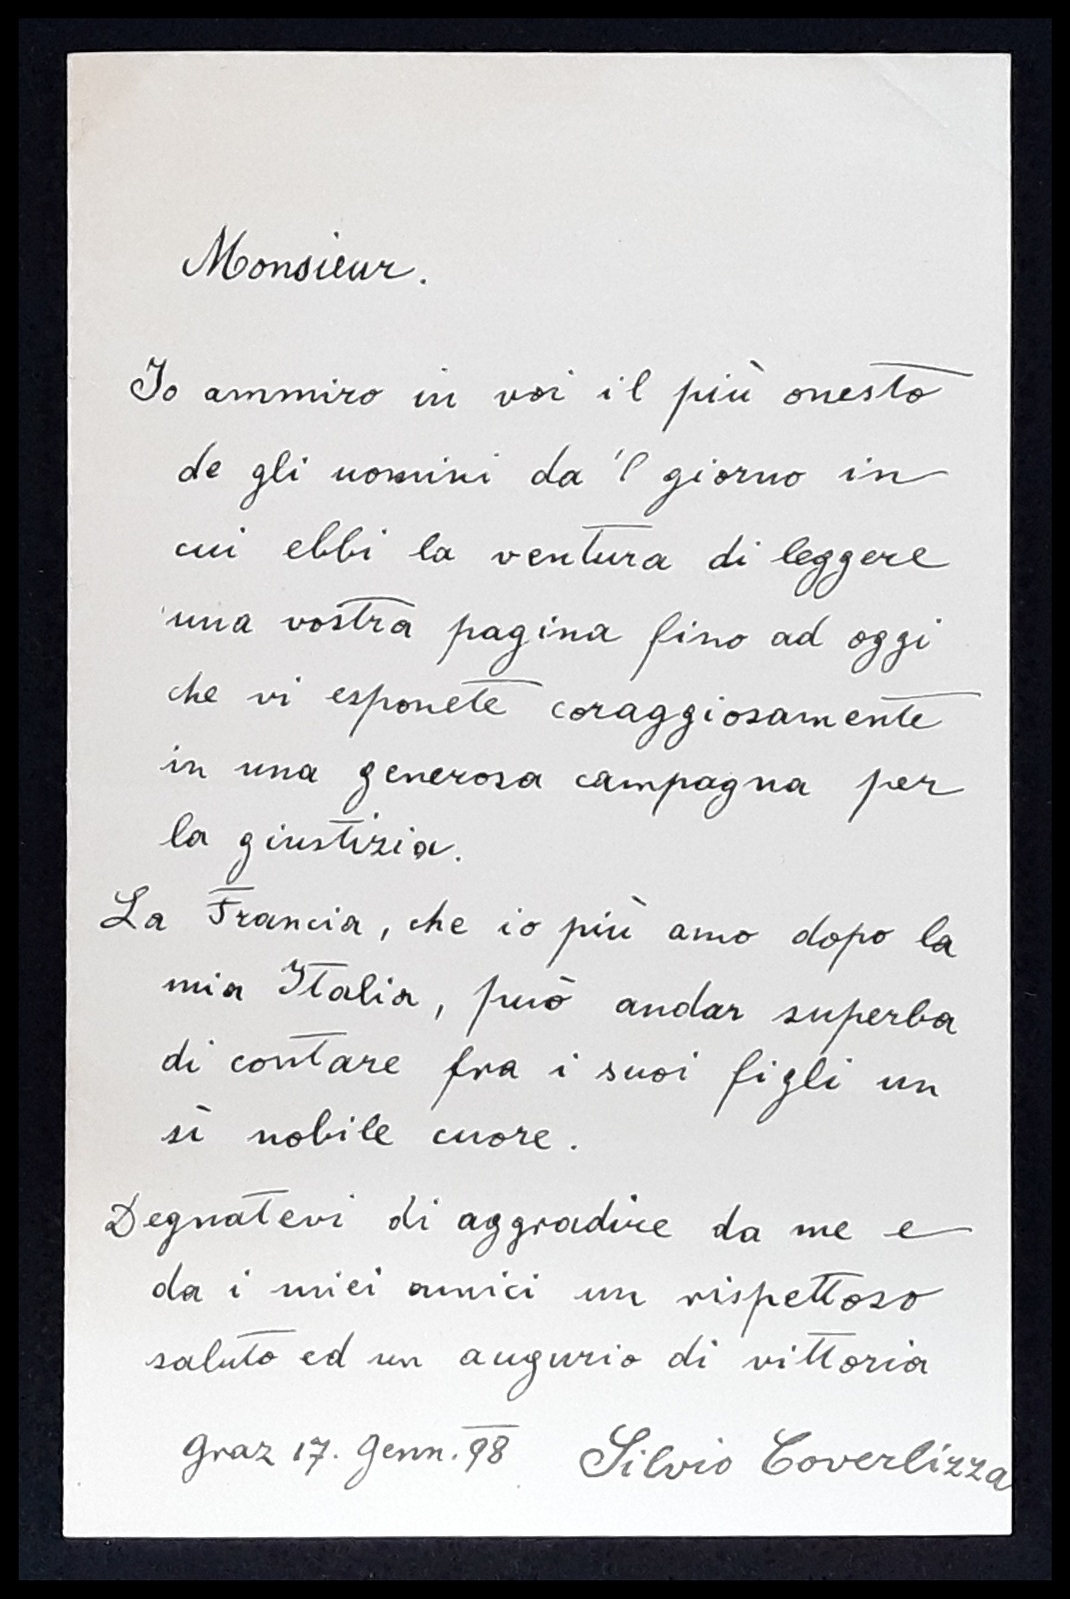 Monsieur.
Io ammiro in voi il più onesto
de gli uomini da 'l giorno in
cui ebbi la ventura di leggere
una vostra pagina fino ad oggi
che vi esponete coraggiosamente
in una generosa campagna per
la giustizia.
La Francia, che io più amo dopo la
mia Italia, può andar superba
di contare fra i suoi figli un
sì nobile cuore.
Degnatevi di aggradire da me e
da i miei amici un rispettoso
saluto ed un augurio di vittoria
Graz 17. Genn. 98 Silvio Coverlizza